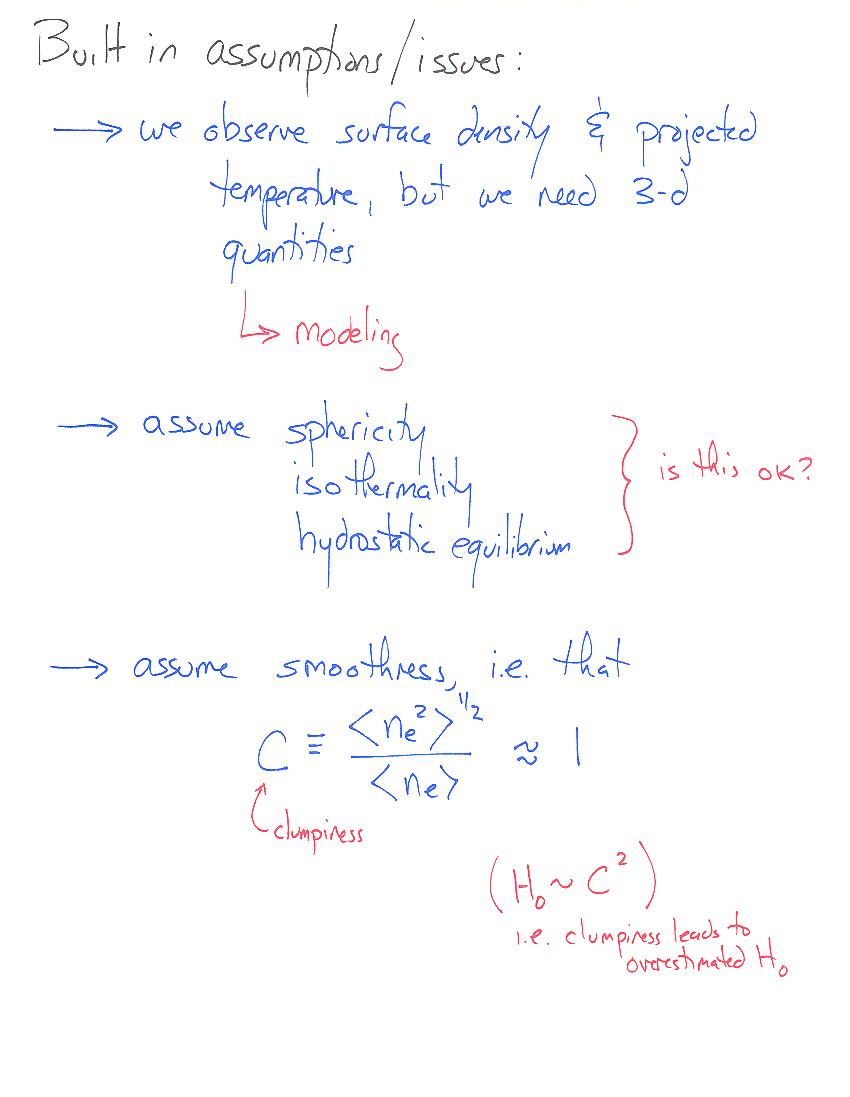 Built in assumptions/issues:
→ we observe surface density & projected
temperature, but we need 3-d
quantities
↳ modeling
→ assume sphericity
isothermality
hydrostatic equilibrium
} is this ok?
→ assume smoothness, i.e. that
C ≡ <nₑ²>^1/2 / <nₑ> ≈ 1
clumpiness
(H₀ ~ C²)
i.e. clumpiness leads to
overestimated H₀